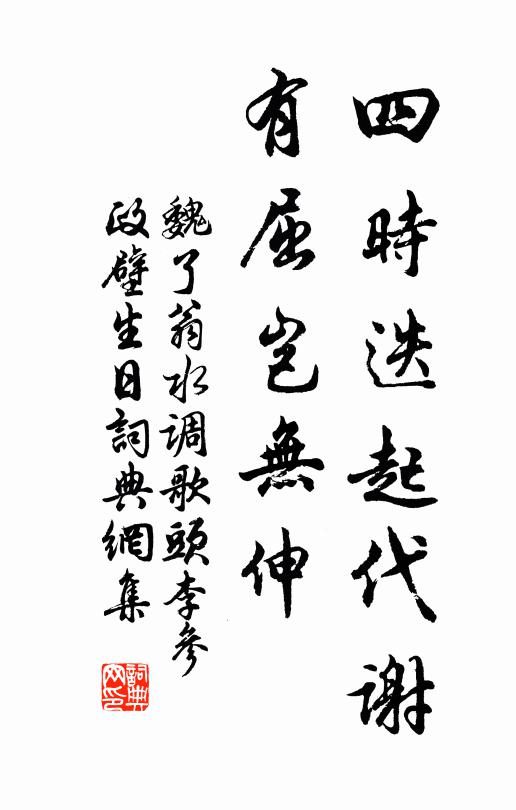 四時迭起代謝
有屈豈無伸
魏了翁水调歌頭李參
政壁生日詞典網集
詞典網印